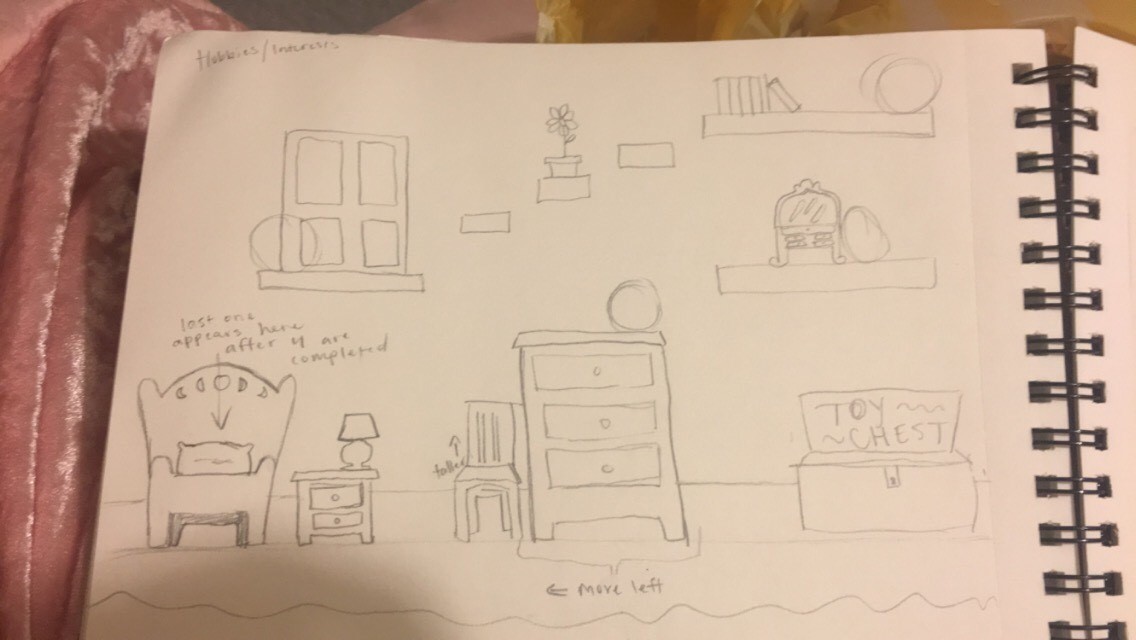 Hobbies/Interests
last one
appears here
after 4 are
completed
taller
TOY
CHEST
← move left